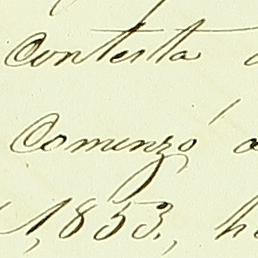 contesta
Comenzó a
1,853, h